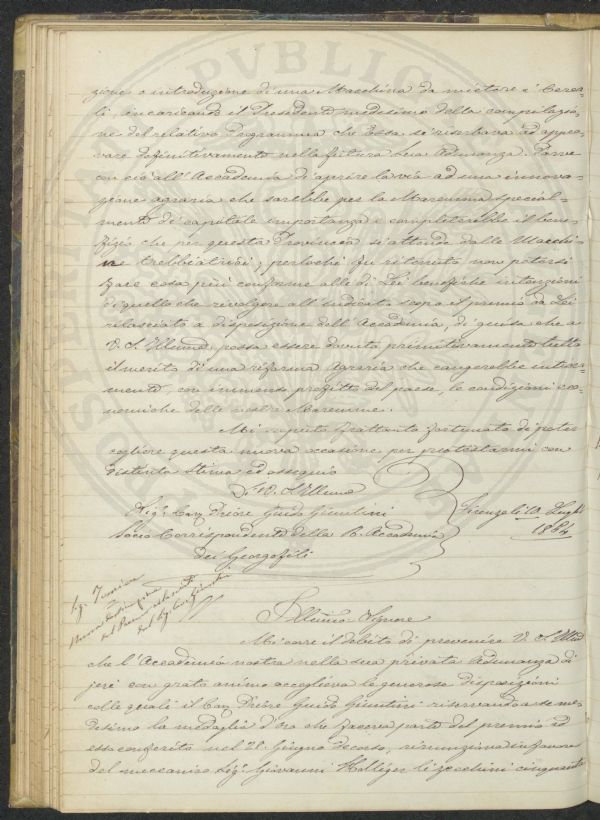 zione o introduzione di una Macchina da mietere i Cerea-
li, incaricando il Presidente medesimo della compilazio-
ne del relativo Programma che Essa si riserbava ad appro-
vare definitivamente nella futura sua Adunanza. Parve
con ciò all'Accademia di aprire la via ad una innova-
zione agraria che sarebbe per la Maremma special-
mente di capitale importanza e completarebbe il bene-
fizio che per questa Provincia si attende dalle Macchi-
ne trebbiatrici; perlochè fu ritenuto non potersi
fare cosa più conforme alle di Lei benefiche intenzioni
di quella che rivolgere all'indicato scopo il premio da Lei
rilasciato a disposizione dell'Accademia, di guisa che a
V. S. Illma possa essere dovuto primitivamente tutto
il merito di una riforma Agraria che cangerebbe intera-
mente, con immenso profitto del paese, le condizioni eco-
nomiche delle nostre Maremme.
Mi reputo frattanto fortunato di poter
cogliere questa nuova occasione per protestarmi con
distinta stima ed ossequio
Di V. S. Illma
Sigr. Cav. Priore Guido Giuntini
Socio Corrispondente della R. Accademia
dei Georgofili
Firenze li 10. Luglio
1854
Sigr.
del
del Sig. Cav. Giuntini
Illmo Signore
Mi corre il debito di prevenire V. S. Illma
che l'Accademia nostra nella sua privata Adunanza di
jeri con grato animo accoglieva le generose disposizioni
colle quali il Cav. Priore Guido Giuntini riservandosi me-
desimo la medaglia d'oro che faceva parte del premio ad
esso conferito nel 21. Giugno decorso, rinunziava in favore
del meccanico Sigr. Giovanni li zecchini cinquanta